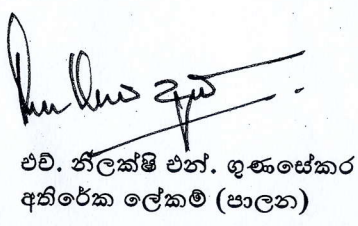 එච්. නිලක්ෂි එන්. ගුණසේකර
අතිරේක ලේකම් (පාලන)